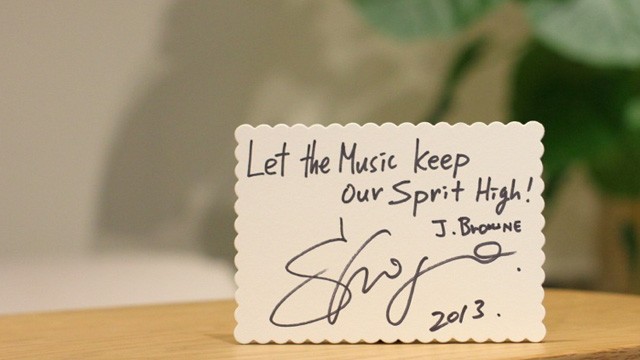 Let the Music keep
our Sprit High!
J. Browne
2013.